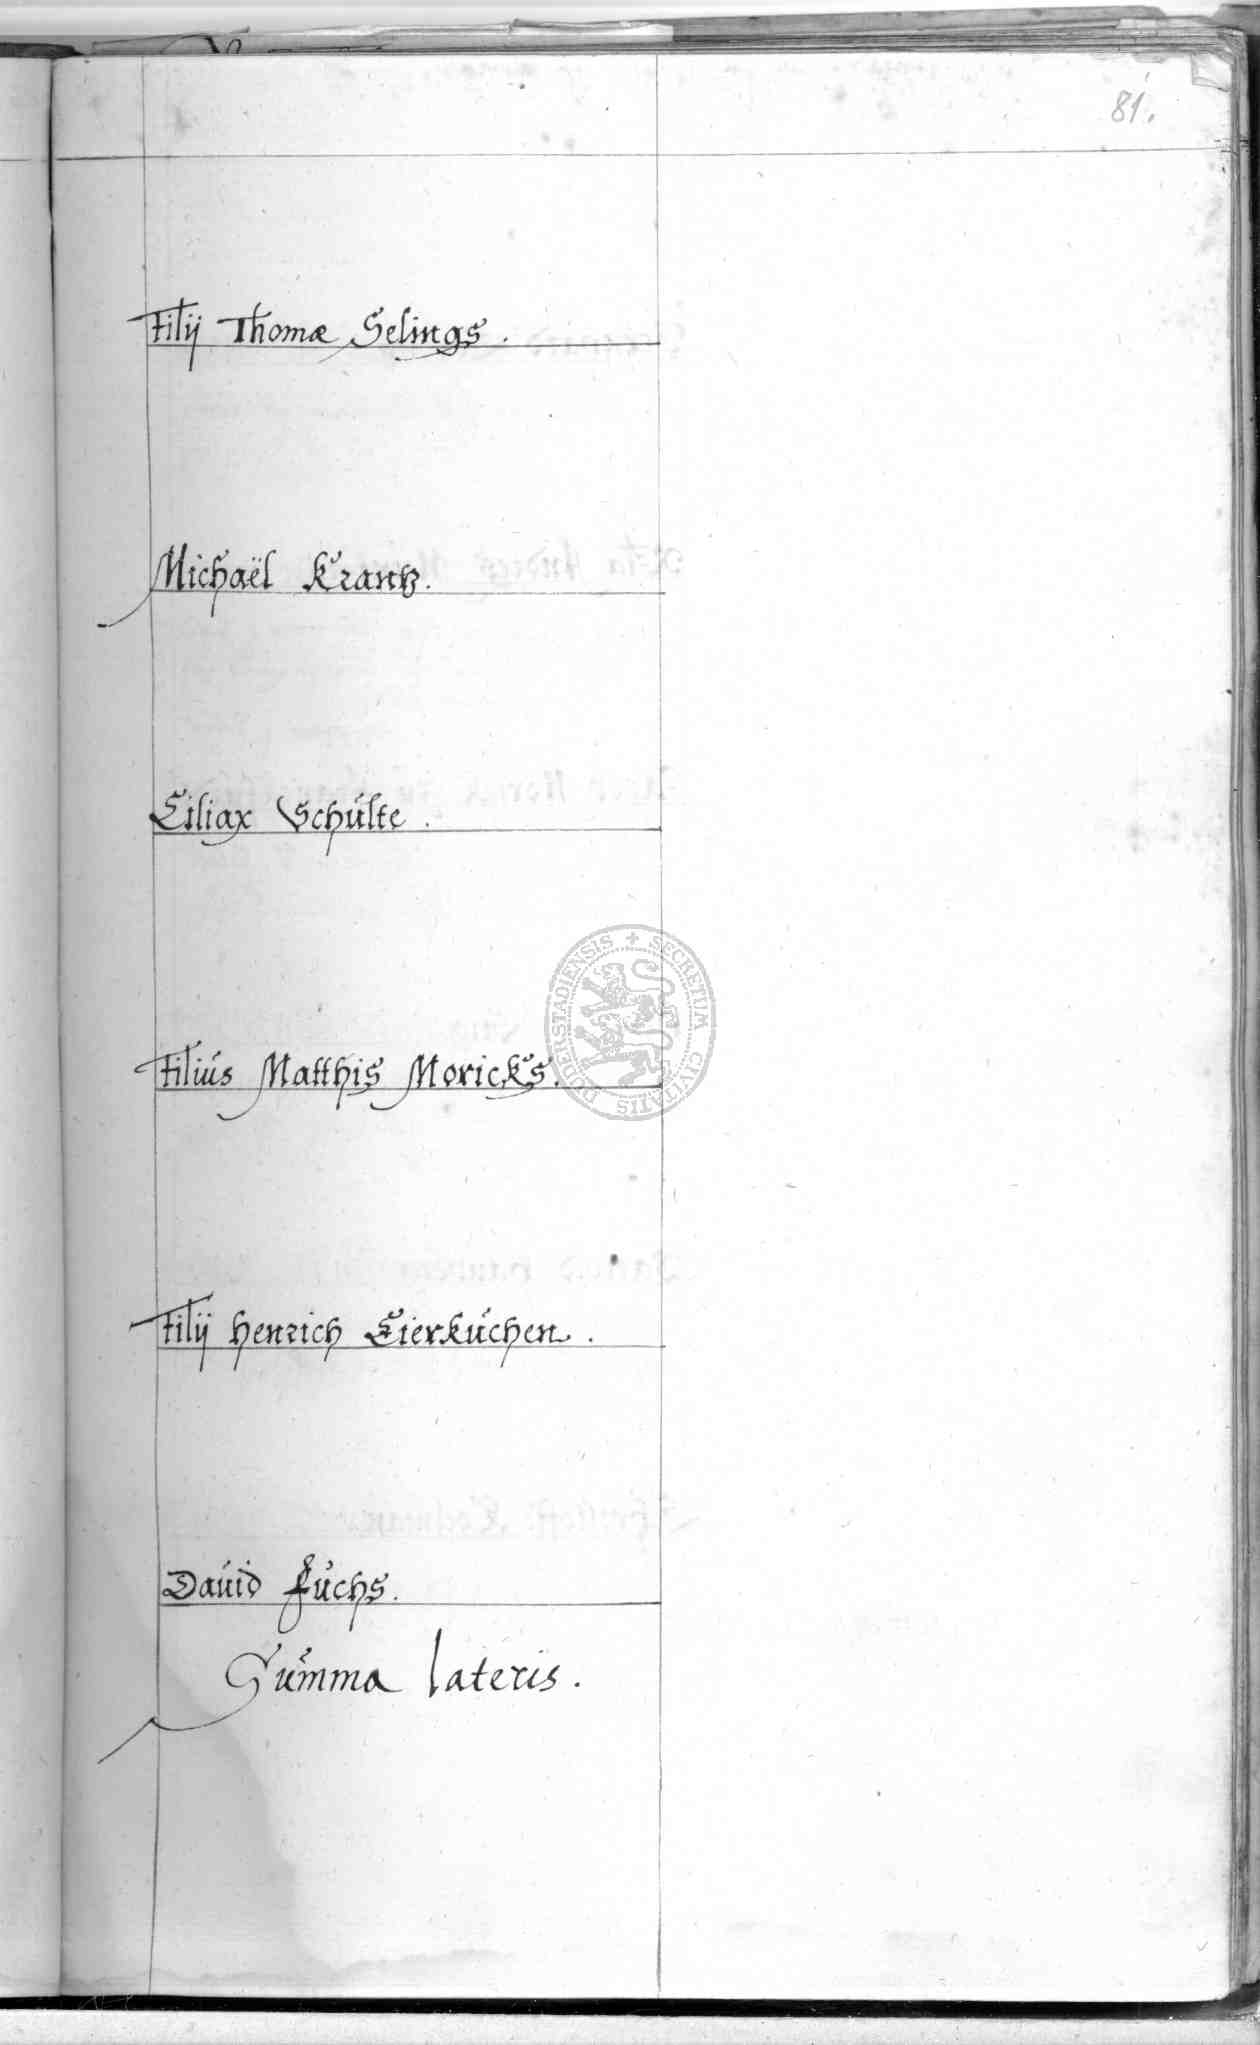 81.
Filij Thomæ Selings.
Michaël Krantz.
Ciliax Schulte.
Filius Matthis Moricks.
SECRETUM CIVITATIS DUDERSTADIENSIS
Filij Henrich Eierkuchen.
David Fuchs.
Summa lateris.